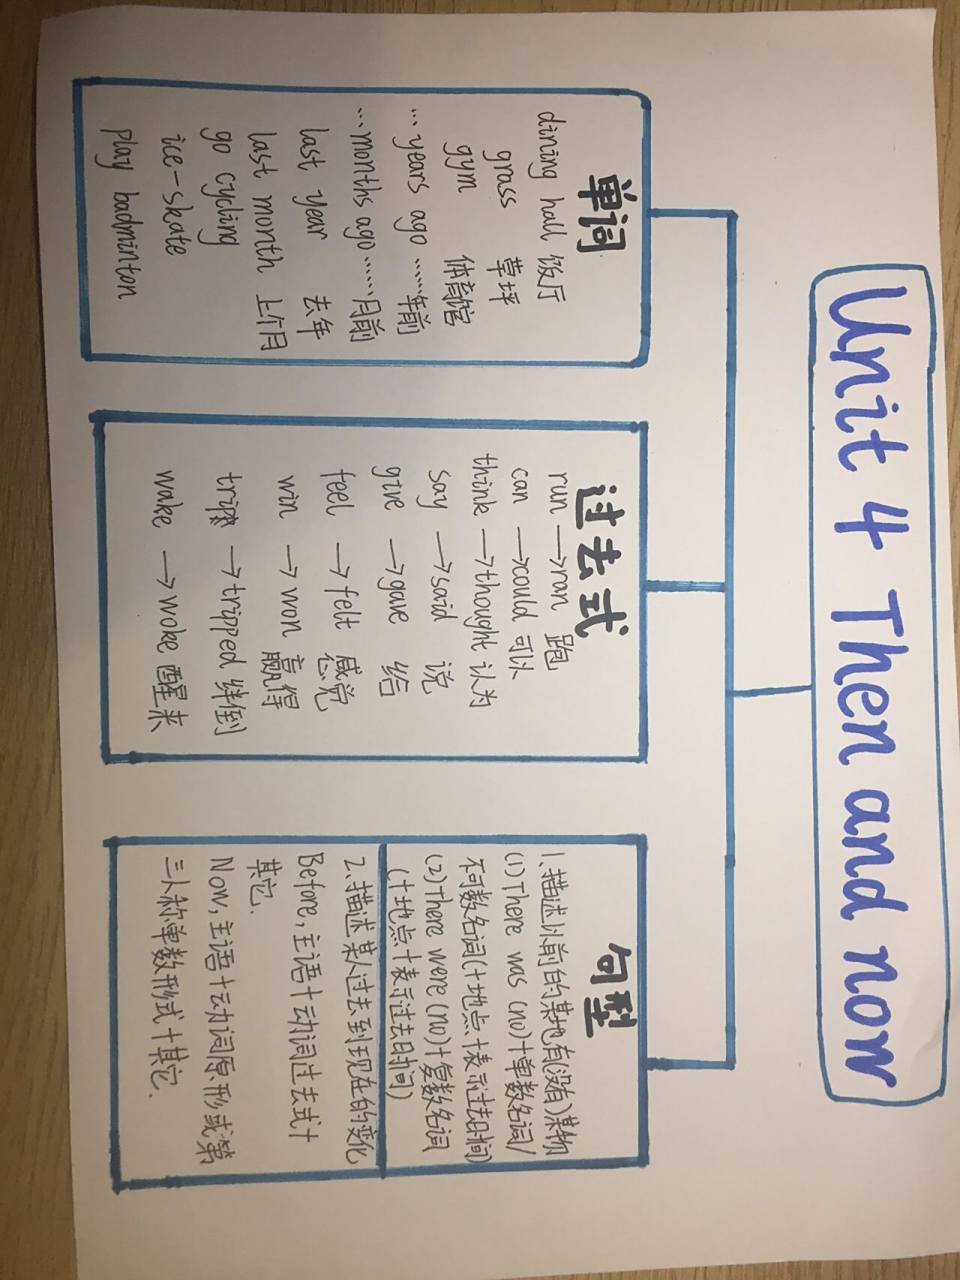 Unit 4 Then and now
单词
dining hall 饭厅
grass 草坪
gym 体育馆
...years ago ......年前
...months ago ......月前
last year 去年
last month 上个月
go cycling
ice-skate
play badminton
过去式
run →ran 跑
can →could 可以
think →thought 认为
say →said 说
give →gave 给
feel →felt 感觉
win →won 赢得
trip →tripped 绊倒
wake →woke 醒来
句型
1.描述以前的某地有(没有)某物
(1)There was (no)+单数名词/
不可数名词(+地点+表示过去时间)
(2)There were (no)+复数名词
(+地点+表示过去时间)
2.描述某人过去到现在的变化
Before,主语+动词过去式+
其它.
Now,主语+动词原形或第
三人称单数形式+其它.